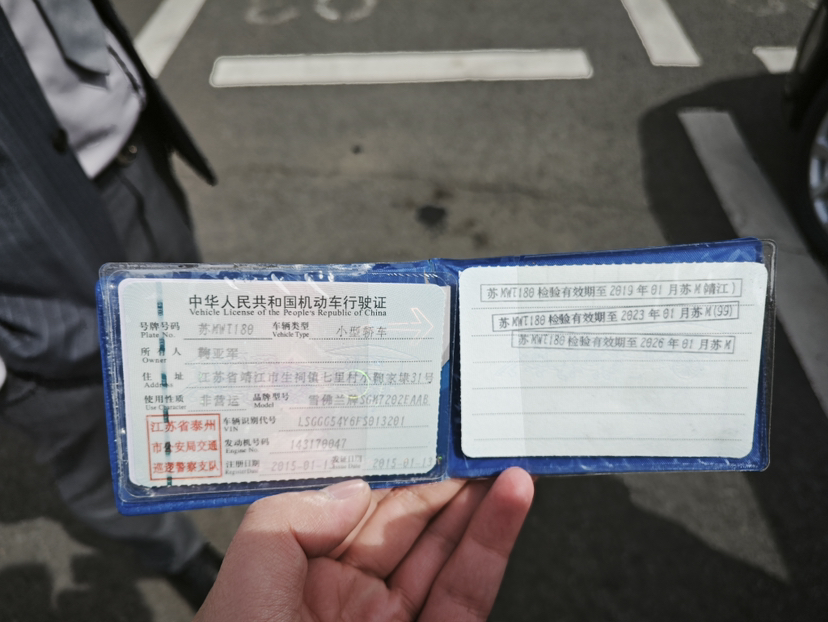 中华人民共和国机动车行驶证
Vehicle License of the People's Republic of China
号牌号码 苏MWT180 车辆类型 小型轿车
Plate No. Vehicle Type
所有人 鞠亚军
Owner
住址 江苏省靖江市生祠镇七里村小鞠家埭31号
Address
使用性质 非营运 品牌型号 雪佛兰牌SGM7202EAAB
Use Character Model
江苏省泰州
市公安局交通
巡逻警察支队
车辆识别代号 LSGGG54Y6FS013201
VIN
发动机号码 143170047
Engine No.
注册日期 2015-01-1 发证日期 2015-01-1
Register Date Issue Date
苏MWT180 检验有效期至 2019 年 01 月苏M(靖江)
苏MWT180 检验有效期至 2023 年 01 月苏M(99)
苏MWT180 检验有效期至 2026 年 01 月苏M